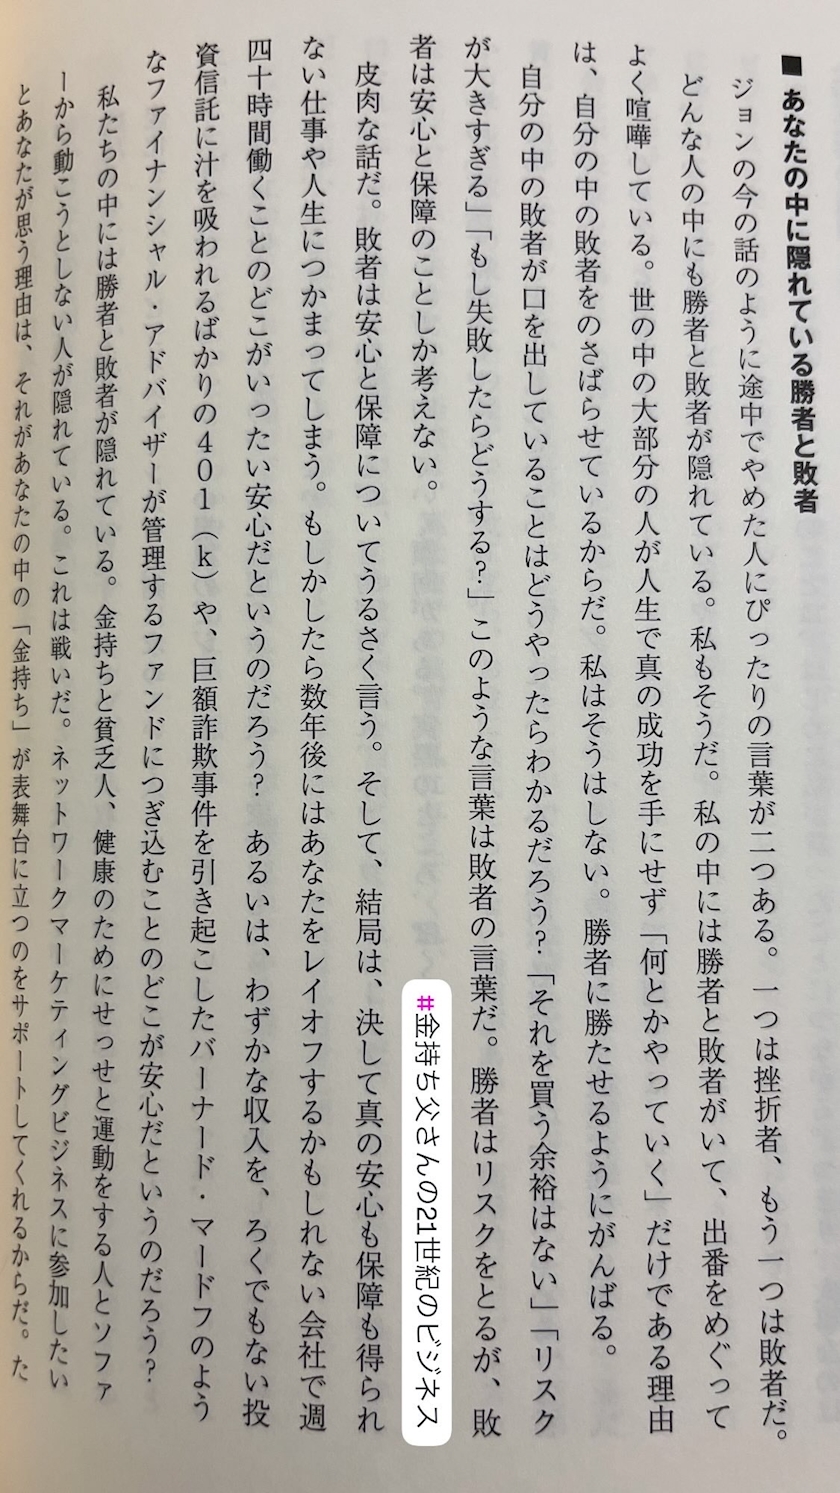 ■ あなたの中に隠れている勝者と敗者
ジョンの今の話のように途中でやめた人にぴったりの言葉が二つある。一つは挫折者、もう一つは敗者だ。
どんな人の中にも勝者と敗者が隠れている。私もそうだ。私の中には勝者と敗者がいて、出番をめぐって
よく喧嘩している。世の中の大部分の人が人生で真の成功を手にせず「何とかやっていく」だけである理由
は、自分の中の敗者をのさばらせているからだ。私はそうはしない。勝者に勝たせるようにがんばる。
自分の中の敗者が口を出していることはどうやったらわかるだろう?「それを買う余裕はない」「リスク
が大きすぎる」「もし失敗したらどうする?」このような言葉は敗者の言葉だ。勝者はリスクをとるが、敗
者は安心と保障のことしか考えない。
皮肉な話だ。敗者は安心と保障についてうるさく言う。そして、結局は、決して真の安心も保障も得られ
ない仕事や人生につかまってしまう。もしかしたら数年後にはあなたをレイオフするかもしれない会社で週
四十時間働くことのどこがいったい安心だというのだろう? あるいは、わずかな収入を、ろくでもない投
資信託に汁を吸われるばかりの401(k)や、巨額詐欺事件を引き起こしたバーナード・マードフのよう
なファイナンシャル・アドバイザーが管理するファンドにつぎ込むことのどこが安心だというのだろう?
私たちの中には勝者と敗者が隠れている。金持ちと貧乏人、健康のためにせっせと運動をする人とソファ
ーから動こうとしない人が隠れている。これは戦いだ。ネットワークマーケティングビジネスに参加したい
とあなたが思う理由は、それがあなたの中の「金持ち」が表舞台に立つのをサポートしてくれるからだ。た
#金持ち父さんの21世紀のビジネス